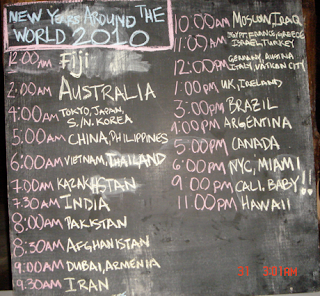 NEW YEARS AROUND THE
WORLD 2010
12:00 AM FIJI
2:00 AM AUSTRALIA
4:00 AM TOKYO, JAPAN,
S./N. KOREA
5:00 AM CHINA, PHILIPPINES
6:00 AM VIETNAM, THAILAND
7:00 AM KAZAKHSTAN
7:30 AM INDIA
8:00 AM PAKISTAN
8:30 AM AFGHANISTAN
9:00 AM DUBAI, ARMENIA
9:30 AM IRAN
10:00 AM MOSCOW, IRAQ
11:00 AM EGYPT, GREECE
ISRAEL, TURKEY
12:00 PM GERMANY, AUSTRIA
ITALY, VATICAN CITY
1:00 PM UK, IRELAND
3:00 PM BRAZIL
1:00 PM ARGENTINA
5:00 PM CANADA
6:00 PM NYC, MIAMI
9:00 PM CALI. BABY!!
11:00 PM HAWAII